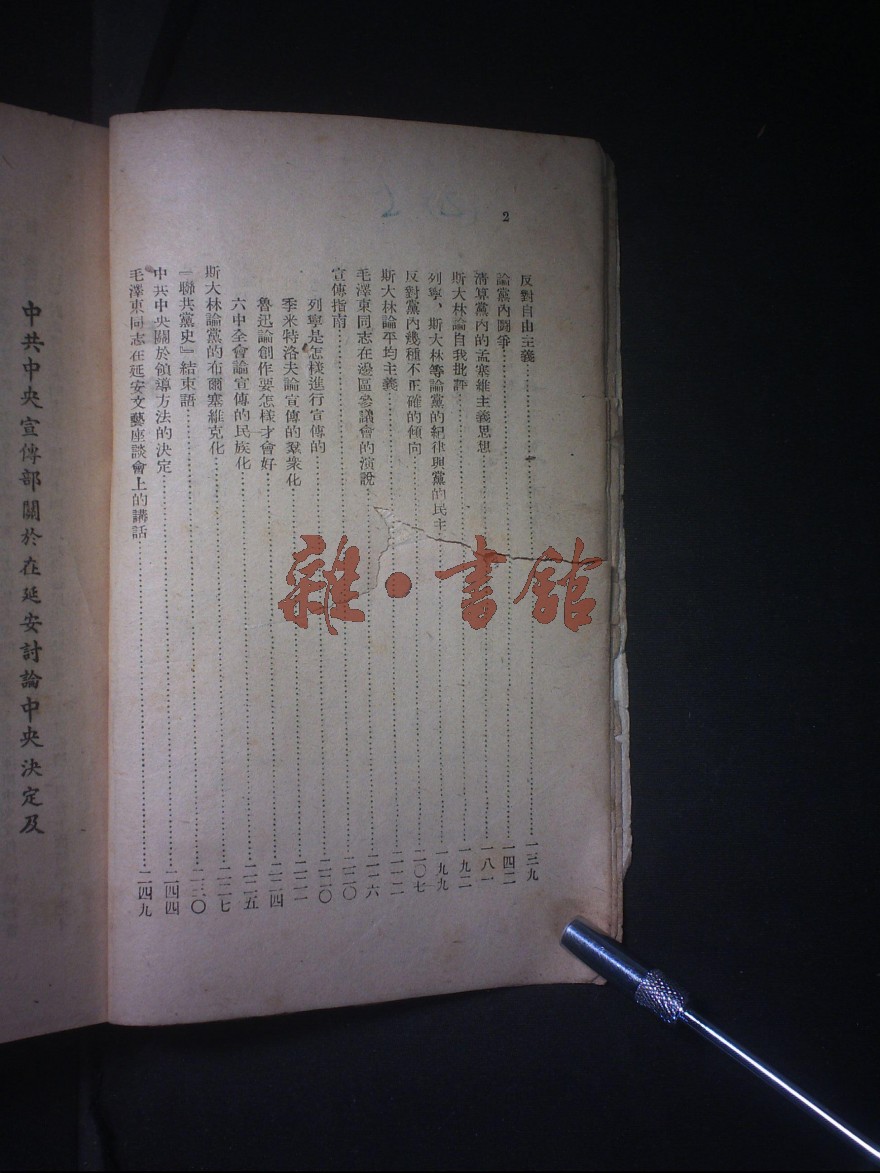 2
反對自由主義……一三九
論黨內鬪爭……一四二
清算黨內的孟塞維主義思想……一八一
斯大林論自我批評……一九二
列寧、斯大林等論黨的紀律與黨的民主……一九九
反對黨內幾種不正確的傾向……二〇七
斯大林論平均主義……二一二
毛澤東同志在邊區參議會的演說……二一六
宣傳指南……二二〇
列寧是怎樣進行宣傳的……二二〇
季米特洛夫論宣傳的羣衆化……二二二
魯迅論創作要怎樣才會好……二二四
六中全會論宣傳的民族化……二二五
斯大林論黨的布爾塞維克化……二二七
『聯共黨史』結束語……二三〇
中共中央關於領導方法的決定……二四四
毛澤東同志在延安文藝座談會上的講話……二四九
中共中央宣傳部關於在延安討論中央決定及
雜·書館